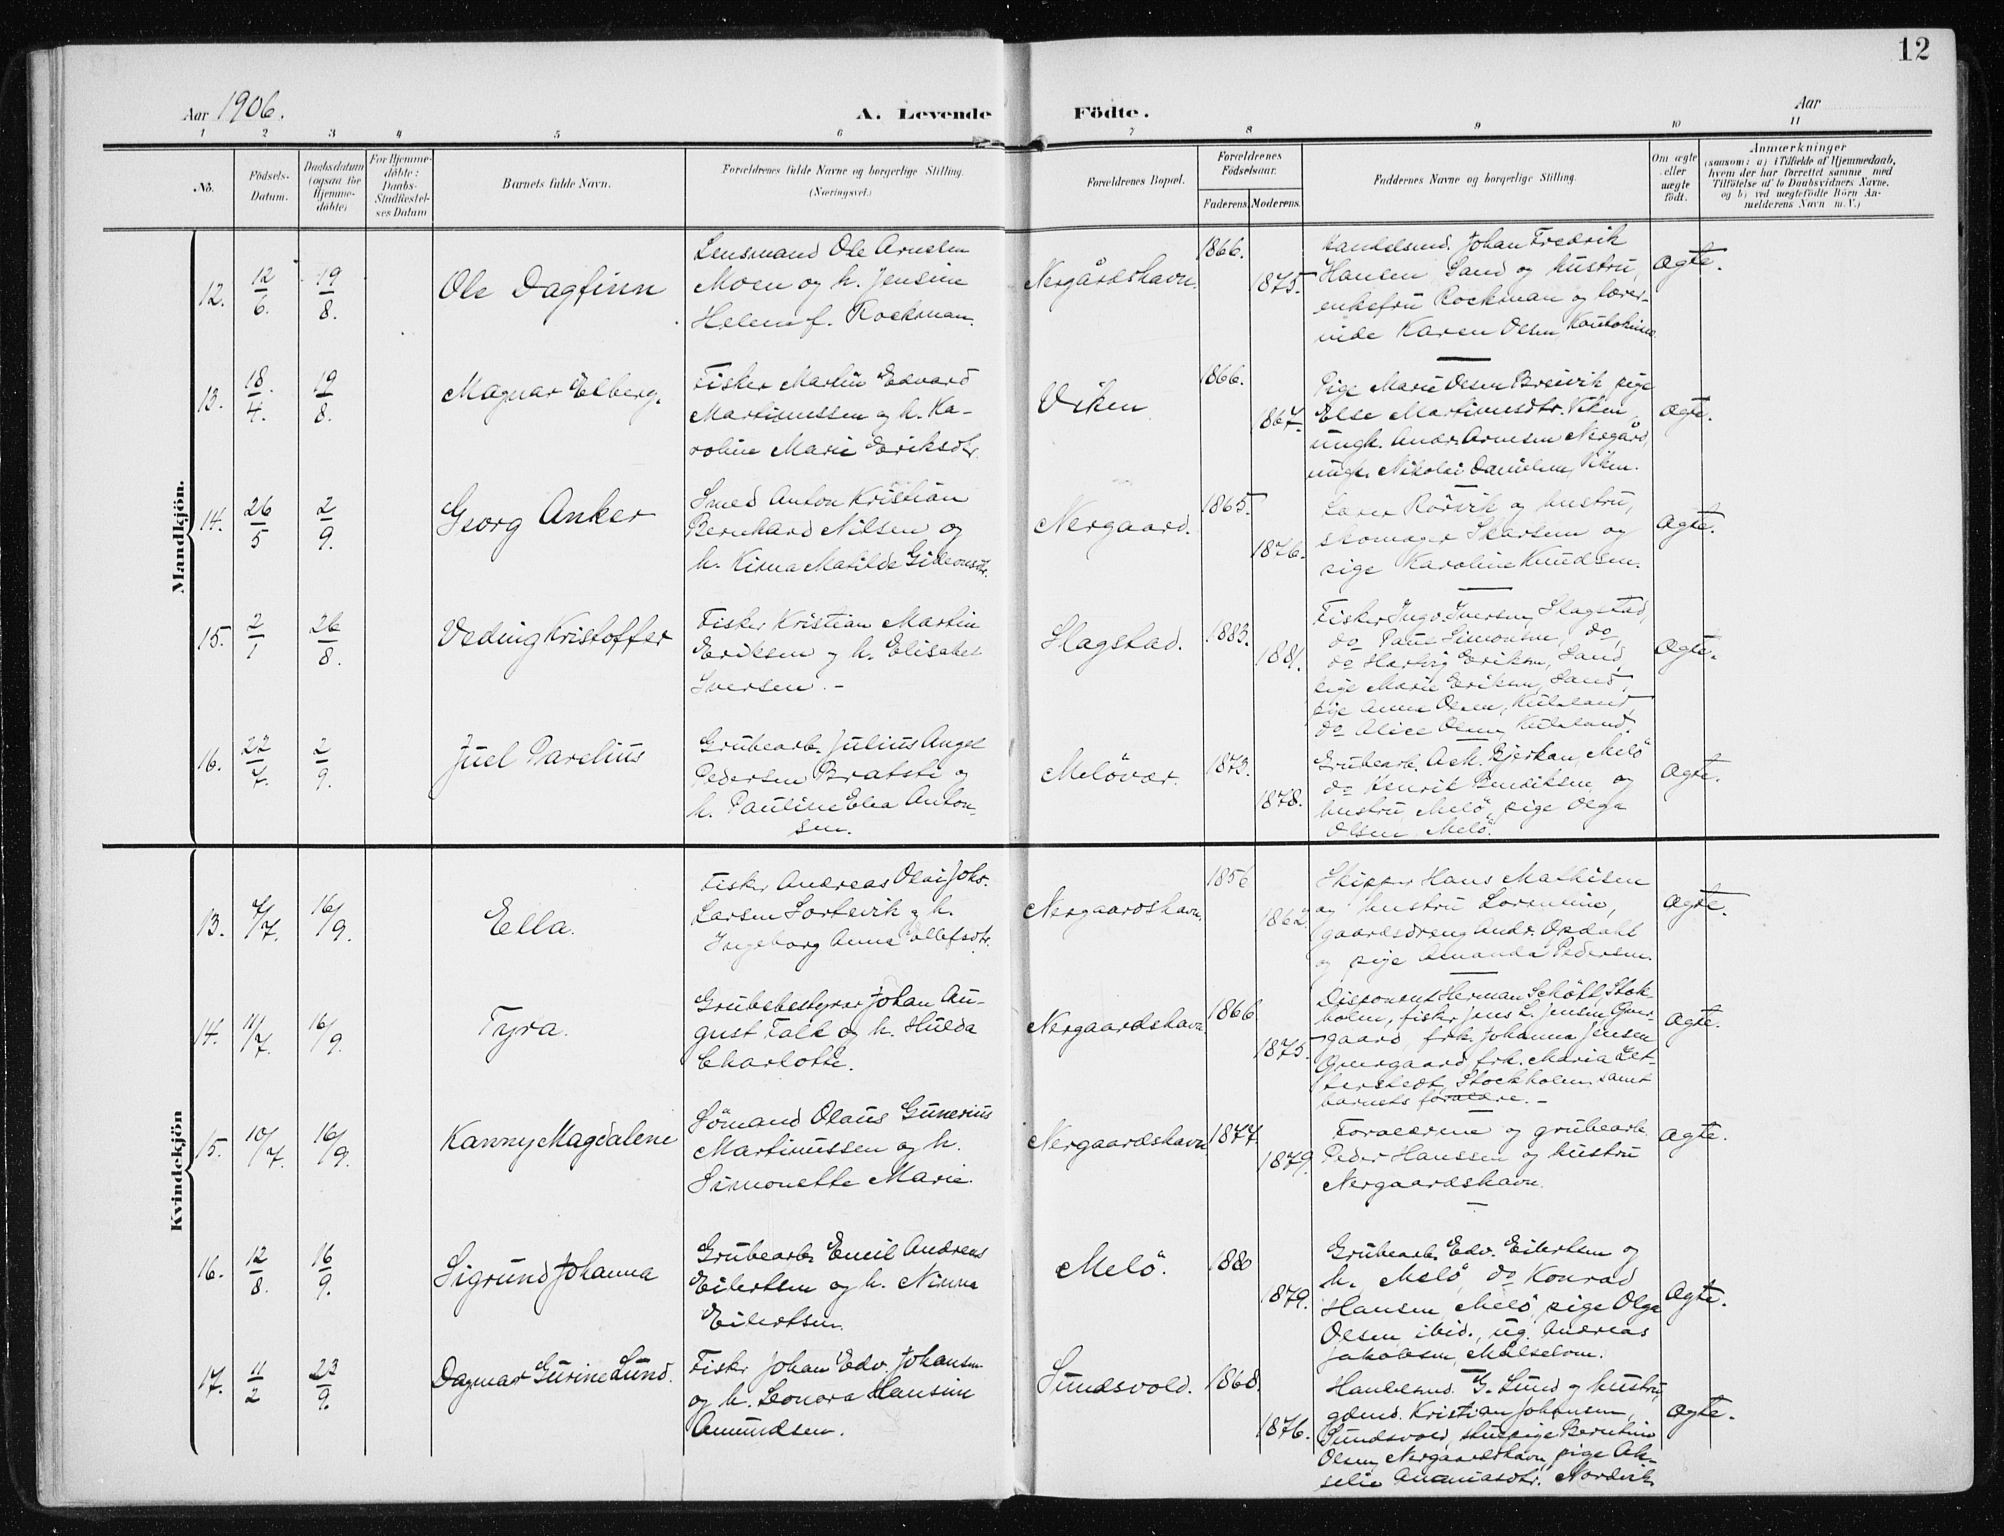 12
Aar 1906.
A. Levende Födte.
Aar
1 2 3 4 5 6 7 8 9 10 11
No.
Födsels-
Datum.
Daabsdatum
(ogsaa for
Hjemme-
döbte)
For Hjemme-
döbte:
Daabs-
Stadfæstel-
ses Datum
Barnets fulde Navn.
Forældrenes fulde Navne og borgerlige Stilling.
(Næringsvei.)
Forældrenes Bopæl.
Forældrenes
Födselsaar.
Faderens. Moderens.
Faddernes Navne og borgerlige Stilling.
Om ægte
eller
uægte
födt.
Anmærkninger
(saasom: a) i Tilfælde af Hjemmedaab,
hvem der har forrettet samme, med
Tilföielse af to Daabsvidners Navne,
og b) ved uægtefödte Börn An-
melderens Navn m. V.)
Mandkjön.
12.
12/6.
19/8.
Ole Dagfinn
Lensmand Ole Arnesen
Moen og h. Jensine
Helene f. Rockman.
Nergårdshavn.
1866.
1875.
Handelsmd. Johan Fredrik
Hansen Sand og hustru,
enkefru Rockman og lærer-
inde Karen Olsen, Kautokeino
ægte.
13.
18/4.
19/8.
Magnar Elberg.
Fisker Martin Edvard
Martinussen og h. Ka-
roline Marie Eriksdtr.
Viken
1866.
1867.
Pige Marie Olsen Breivik, pige
Else Martinusdtr. Viken,
ungk. Andr. Arnesen Nergård,
ungk. Nikolai Danielsen, Viken.
ægte.
14.
26/5
2/9.
Georg Anker
Smed Anton Kristian
Bernhard Nilsen og
h. Kirna Matilde Gideonsdtr.
Nergaard.
1865.
1876.
Lærer Rörvik og hustru,
skomager Skarsem og
pige Karoline Knudsen.
ægte.
15.
2/1
26/8.
Veding Kristoffer
Fisker Kristian Martin
Eriksen og h. Elisabet
Iversen. -
Slagstad.
1883.
1881.
Fisker Ingv. Iversen, Slagstad,
do Paul Simonsen, do,
do Hartvig Eriksen, Sand,
pige Marie Eriksen, Sand,
pige Anna Olsen, Kulsland,
do Alice Olsen, Kulsland.
ægte.
16.
22/7.
2/9.
Juel Parelius
Grubearb. Julius Angel
Pedersen Bratsti og
h. Pauline Elea Anton-
sen.
Melövær.
1873.
1878.
Grubearb. A. M. Bjerkan, Melö
do Henrik Bendiksen og
hustru, Melö, pige Olga
Olsen, Melö.
ægte.
Kvindekjön
13.
7/7.
16/9.
Ella.
Fisker Andreas Olai Johs.
Larsen Sortevik og h.
Ingeborg Anna Tollefsdtr.
Nergaardshavn.
1856
1862.
Skipper Hans Mathisen
og hustru Lorentine,
gaardsdreng Andr. Opdahl
og pige Amanda Pedersen.
ægte.
14.
11/7.
16/9.
Tyra.
Grubebestyrer Johan Au-
gust Falk og h. Hulda
Charlotte.
Nergaardshavn
1866
1875.
Disponent Herman Schött, Stok-
holm, fisker Jens L. Jensen Över-
gaard, frk. Johanna Jensen
Övergaard, frk. Maria Zet-
terstedt, Stockholm samt
barnets forældre. -
ægte.
15.
10/7.
16/9.
Kanny Magdalene
Sömand Olaus Gunerius
Martinussen og h.
Simonette Marie.
Nergaardshavn
1877.
1879.
Forældrene og grubearb.
Peder Hanssen og hustru
Nergaardshavn.
ægte.
16.
12/8.
16/9.
Sigrund Johanna
Grubearb. Emil Andreas
Eilertsen og h. Ninna
Eilertsen.
Melö.
1880
1879.
Grubearb. Edv. Eilertsen og
h., Melö, do Konrad
Hansen Melö, pige Olga
Olsen ibid., ug. Andreas
Jakobsen, Målselven.
ægte.
17.
11/2
23/9.
Dagmar Gurine Lund.
Fisker Johan Edv. Johansen
og h. Leonora Hansine
Amundsen.
Sundsvold.
1868.
1876.
Handelsmd. G. Lund og hustru,
gdmd. Kristian Johansen,
Sundsvold, stuepige Berntine
Olsen, Nergaardshavn, pige Ak-
selie Ananiasdtr. Nordvik
ægte.